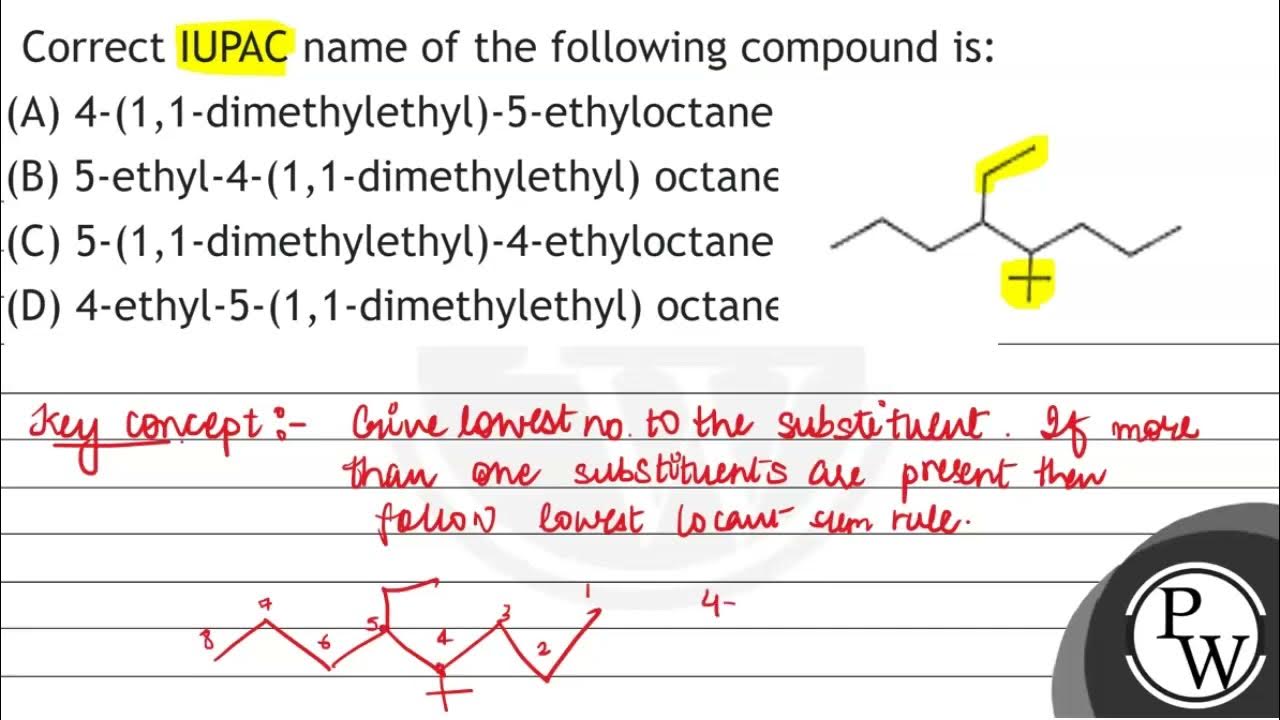 Correct IUPAC name of the following compound is:
(A) 4-(1,1-dimethylethyl)-5-ethyloctane
(B) 5-ethyl-4-(1,1-dimethylethyl) octane
(C) 5-(1,1-dimethylethyl)-4-ethyloctane
(D) 4-ethyl-5-(1,1-dimethylethyl) octane
Key concept :- Give lowest no. to the substituent. If more
than one substituents are present then
follow lowest locant sum rule.
8 7 6 5 4 3 2 1
4-
P
W